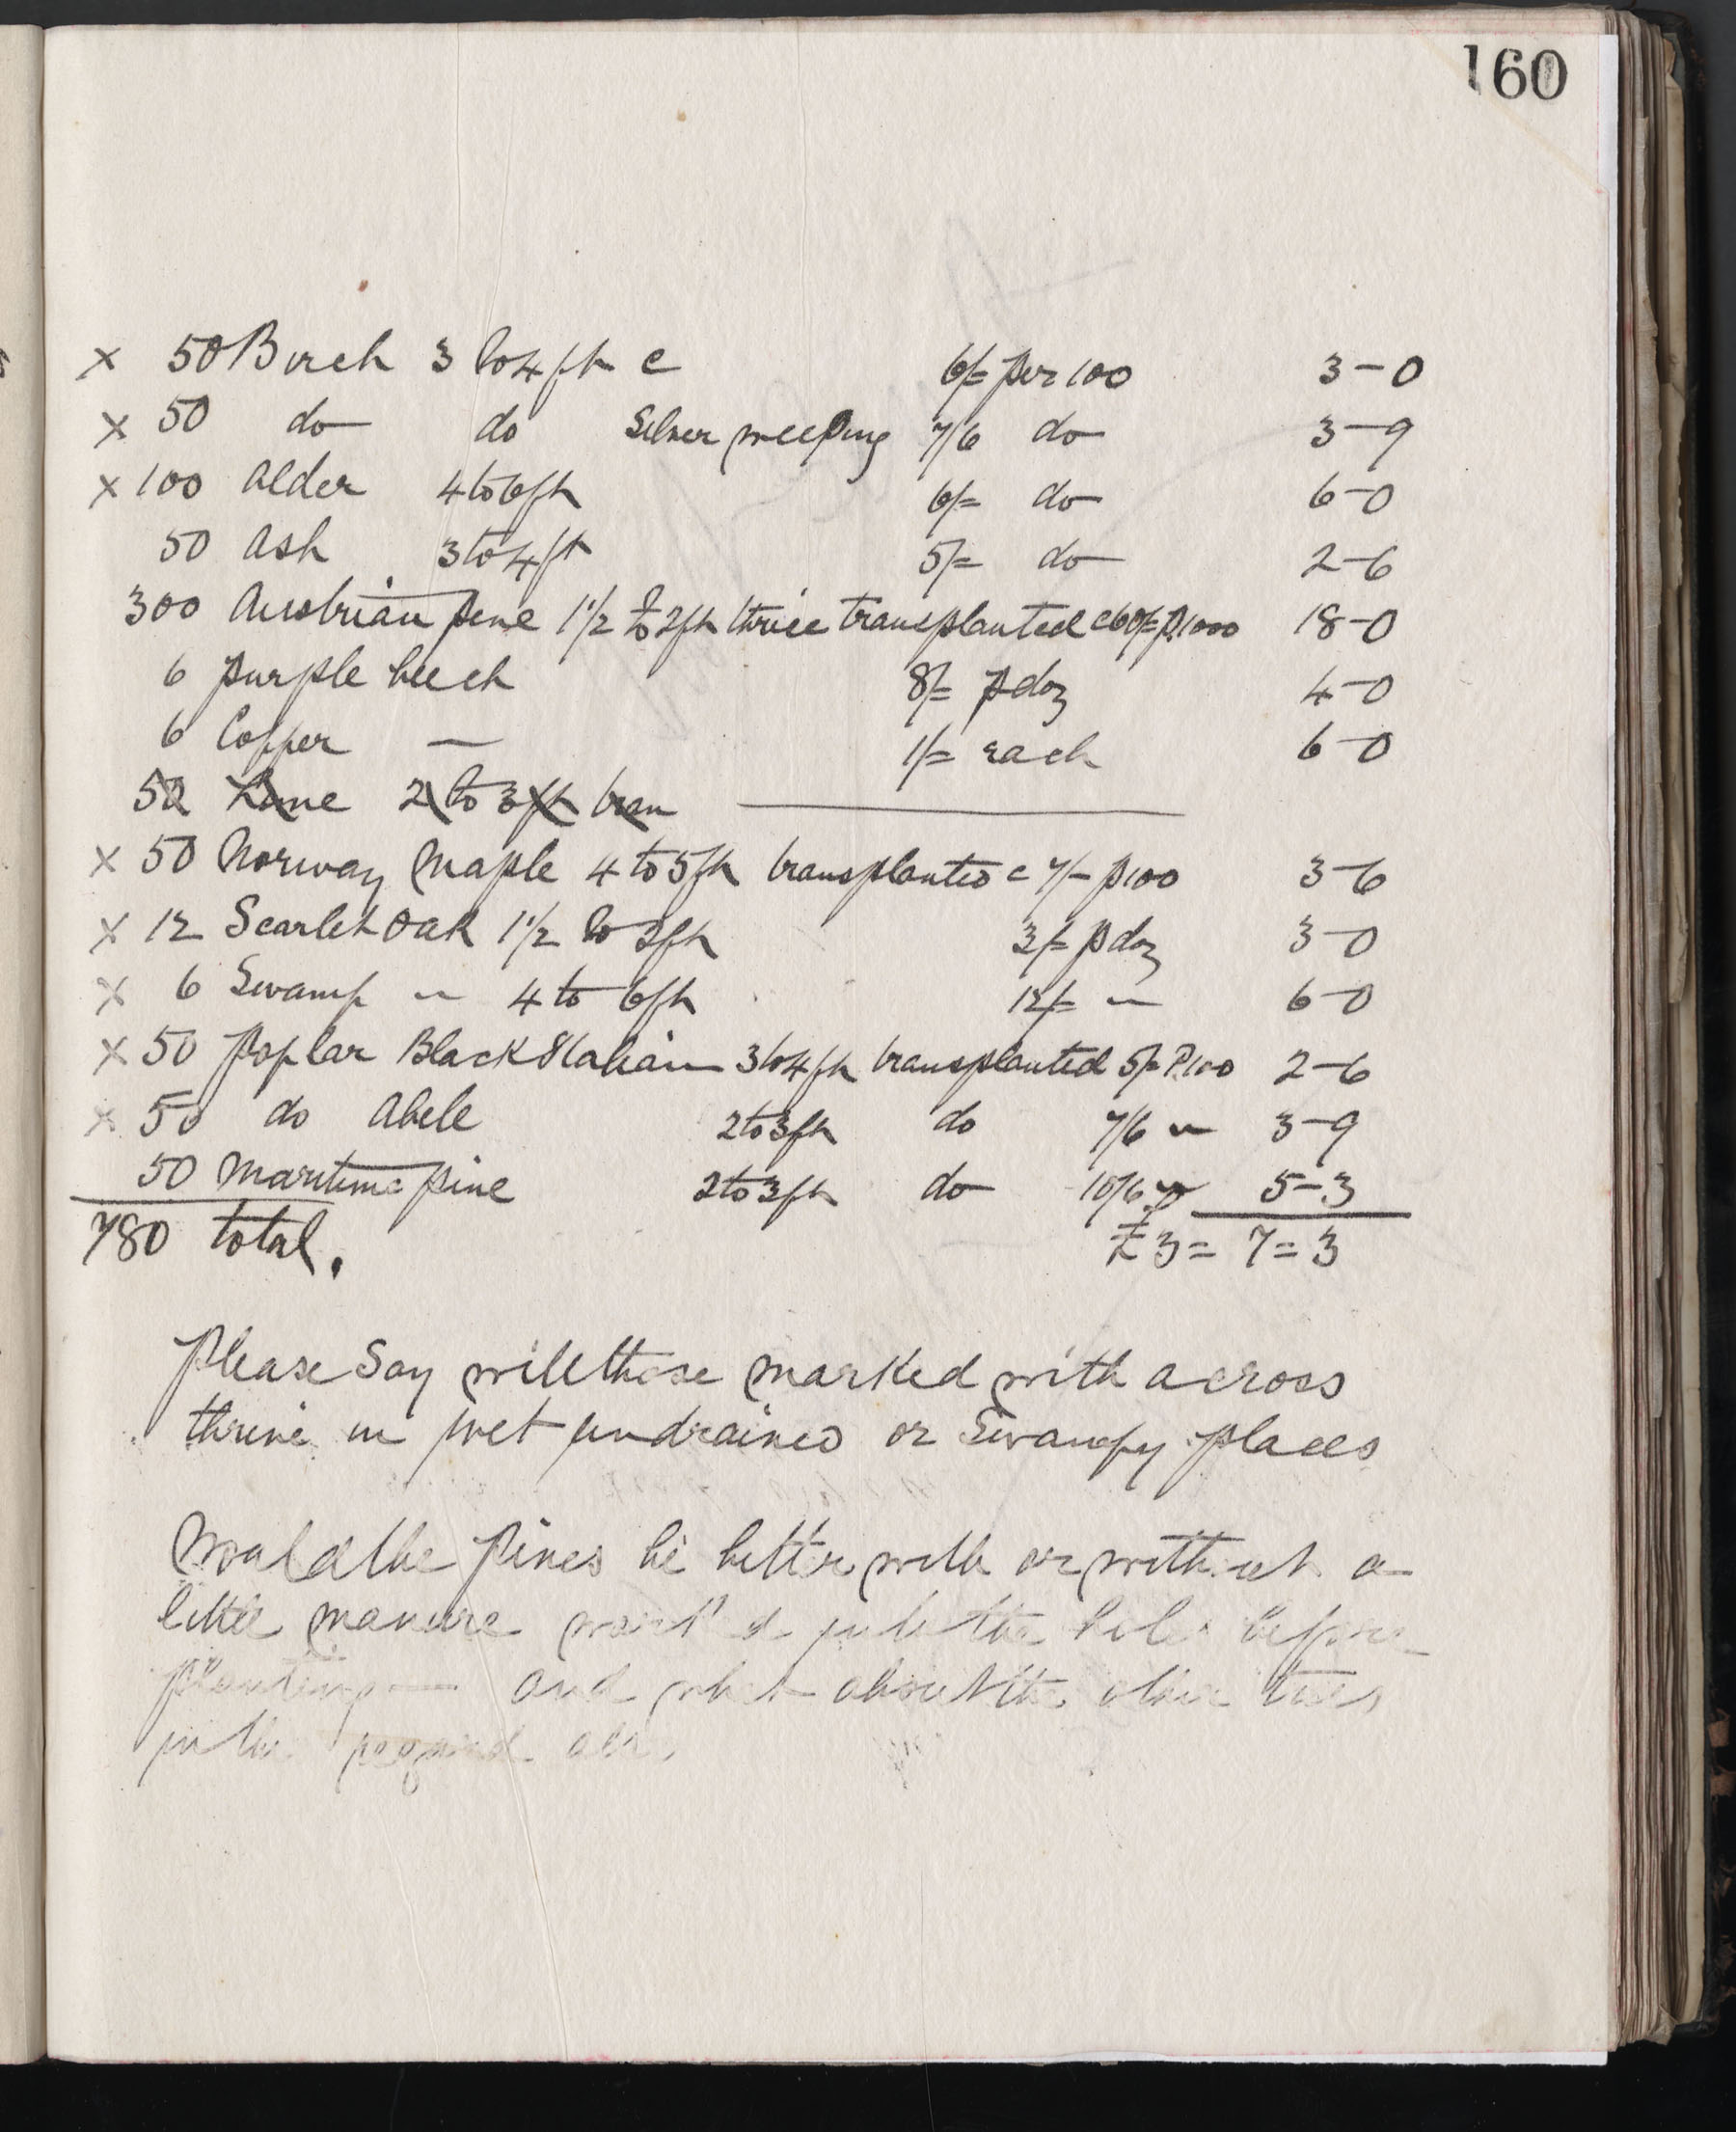 160
x 50 Birch 3 to 4 ft c 6/= per 100 3-0
x 50 do do Silver weeping 7/6 do 3-9
x 100 alder 4 to 6 ft 6/= do 6-0
50 ash 3 to 4 ft 5/= do 2-6
300 Austrian pine 1 1/2 to 2 ft thrice transplanted c 60/= P. 1000 18-0
6 purple beech 8/= p doz 4-0
6 Copper — 1/= each 6-0
50 Lime 2 to 3 ft tran
x 50 Norway Maple 4 to 5 ft transplanted c 7/- p 100 3-6
x 12 Scarlet Oak 1 1/2 to 2 ft 3/= p doz 3-0
x 6 Swamp — 4 to 6 ft 12/= — 6-0
x 50 Poplar Black Italian 3 to 4 ft transplanted 5/= P. 100 2-6
x 50 do Abele 2 to 3 ft do 7/6 — 3-9
50 Maritime pine 2 to 3 ft do 10/6 5-3
780 total. £3 = 7 = 3
Please Say will those marked with a cross
thrive in wet undrained or Swampy places
Would the Pines be better with or without a
little manure into the holes before
planting — and what about the other trees
in the